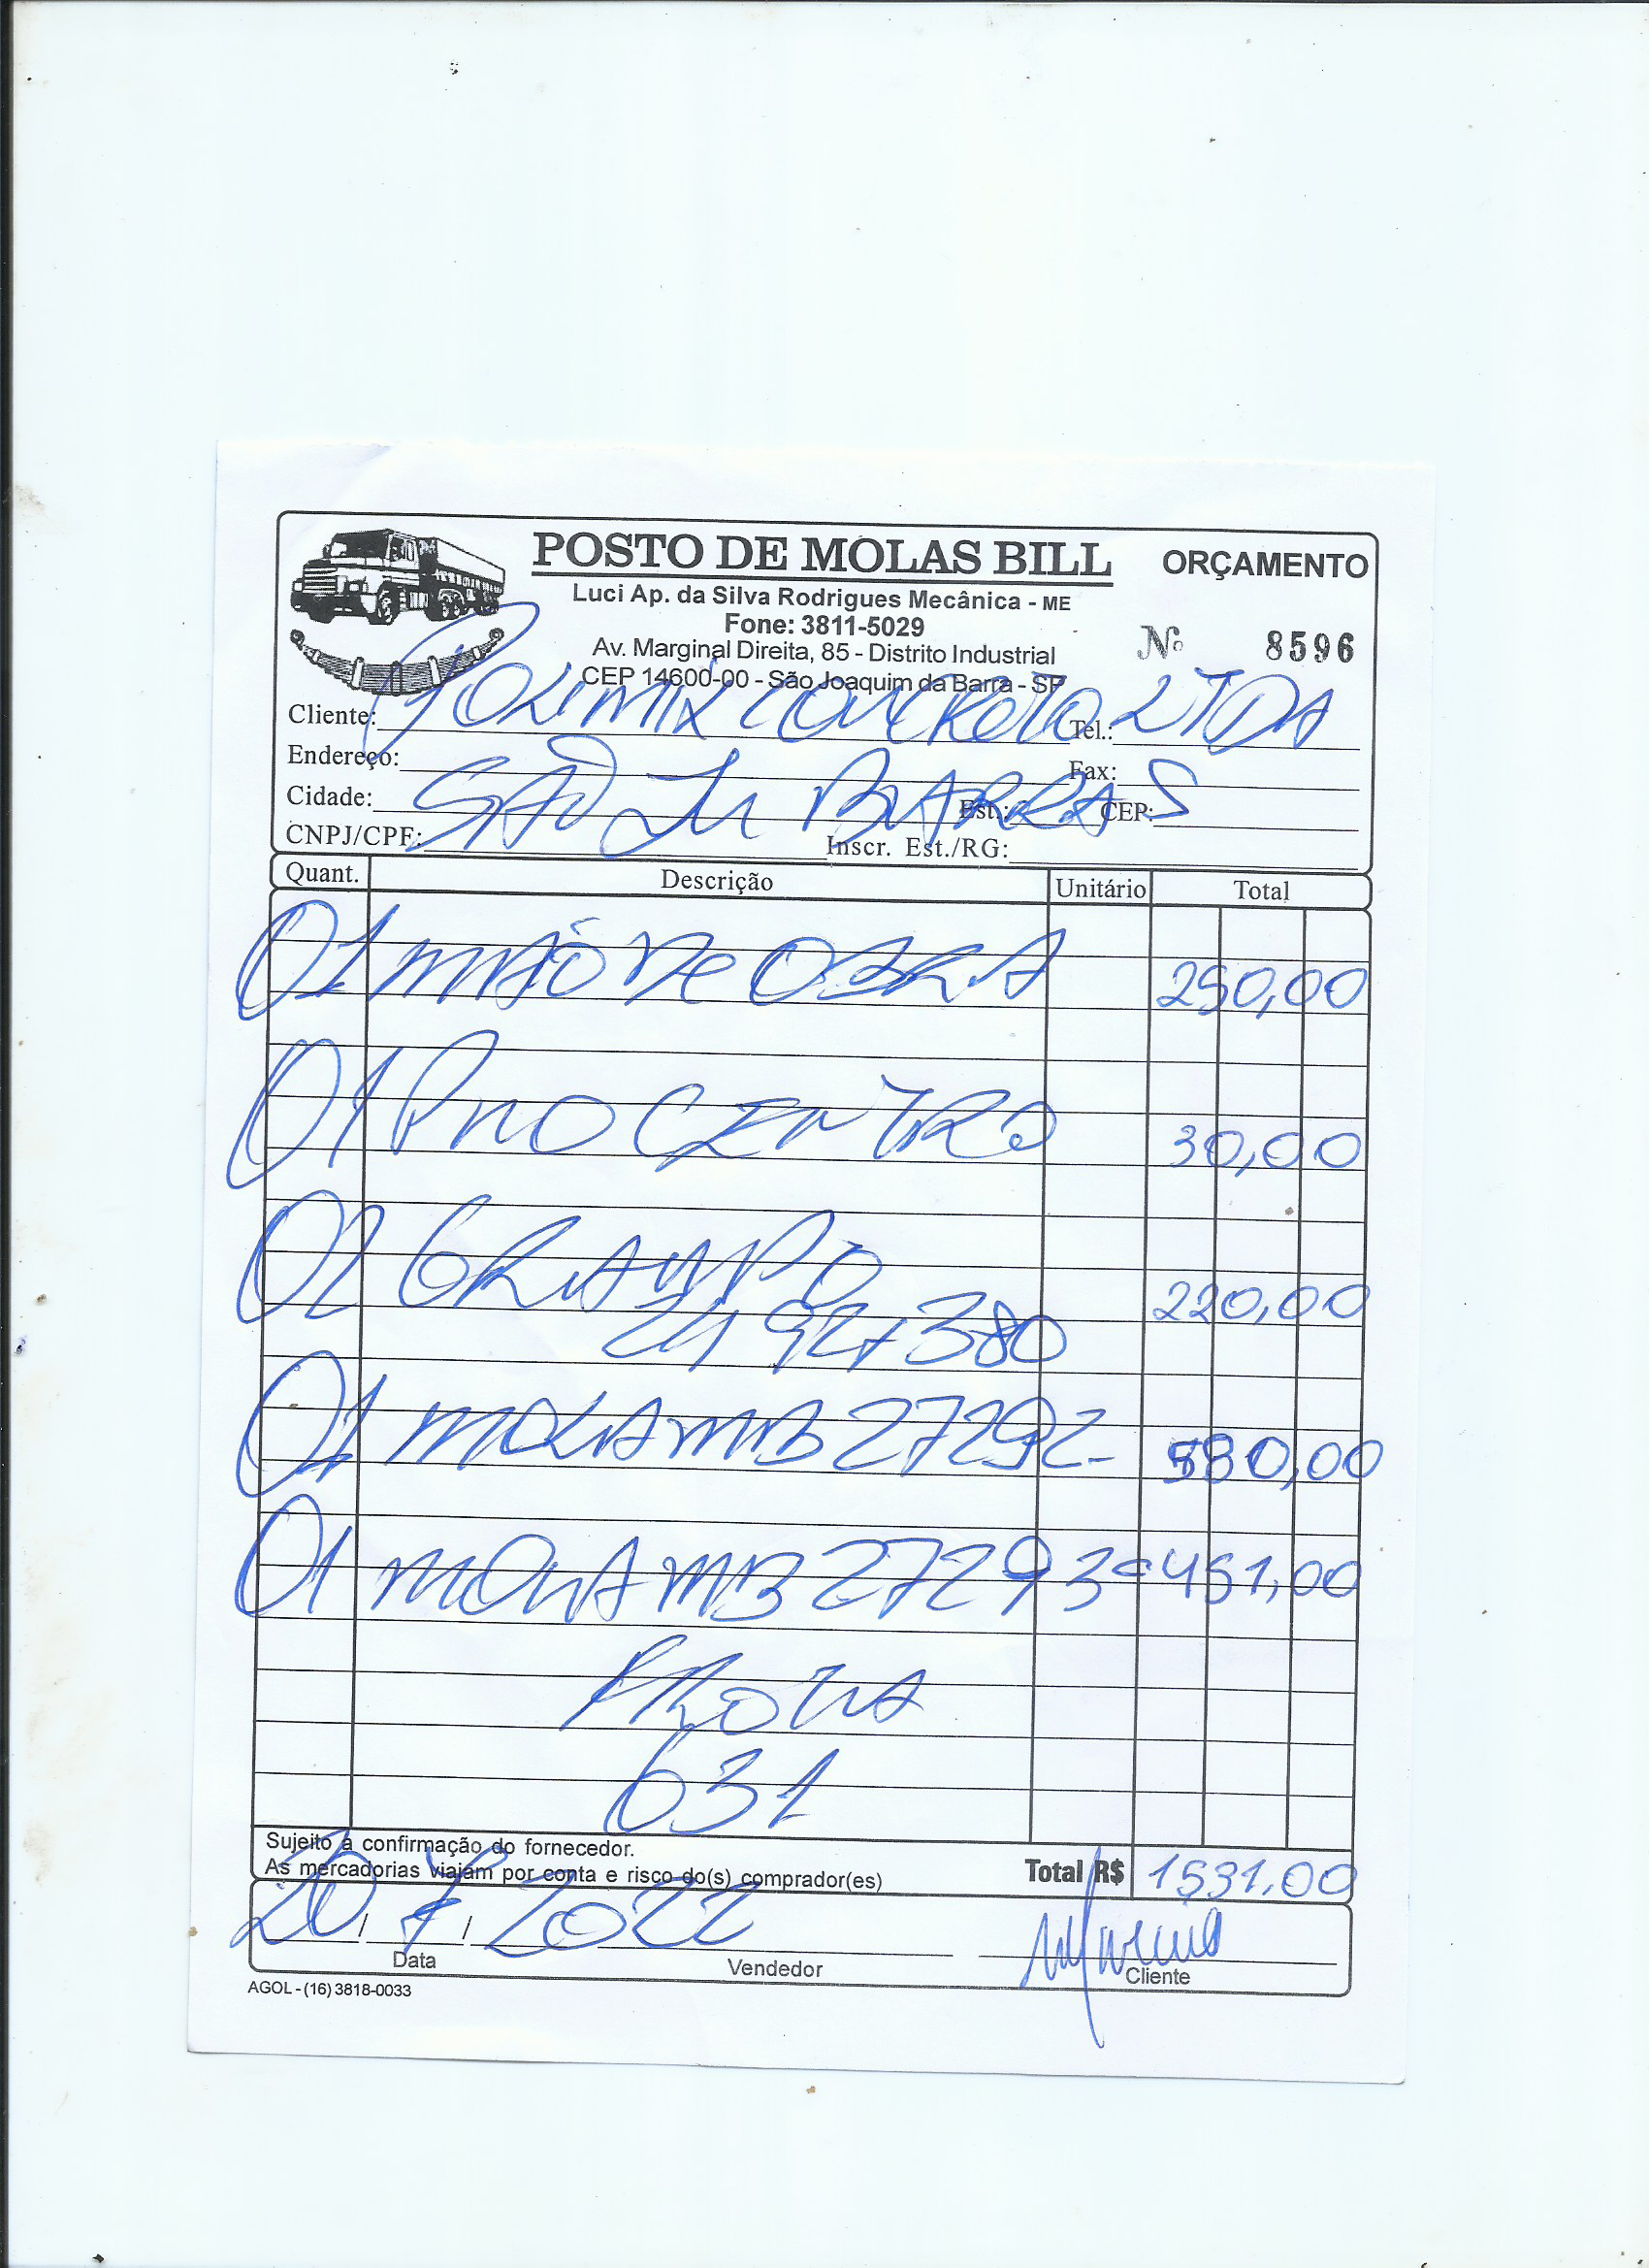 POSTO DE MOLAS BILL
ORÇAMENTO
Luci Ap. da Silva Rodrigues Mecânica - ME
Fone: 3811-5029
Av. Marginal Direita, 85 - Distrito Industrial
Nº 8596
CEP 14600-00 - São Joaquim da Barra - SP
Cliente: POLIMIX CONCRETO LTDA Tel.:
Endereço: Fax:
Cidade: SÃO BARRA Est.: CEP:
CNPJ/CPF: Inscr. Est./RG:
Quant. Descrição Unitário Total
01 MÃO DE OBRA 250,00
01 PINO CENTRO 30,00
02 GRAMPO 220,00
380
01 MOLA MB 27292 - 580,00
01 MOLA MB 27293 = 451,00
FROTA
631
Sujeito à confirmação do fornecedor.
As mercadorias viajam por conta e risco do(s) comprador(es)
Total R$ 1531,00
20 / 7 / 2022
Data Vendedor Cliente
AGOL - (16) 3818-0033